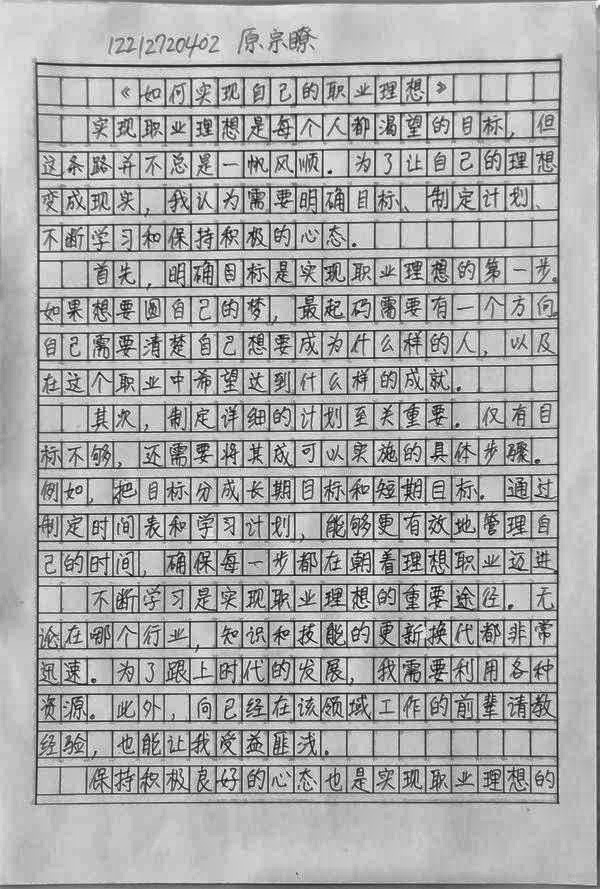 12212720402 原宗瞭
《如何实现自己的职业理想》
实现职业理想是每个人都渴望的目标，但
这条路并不总是一帆风顺。为了让自己的理想
变成现实，我认为需要明确目标、制定计划、
不断学习和保持积极的心态。
首先，明确目标是实现职业理想的第一步。
如果想要圆自己的梦，最起码需要有一个方向。
自己需要清楚自己想要成为什么样的人，以及
在这个职业中希望达到什么样的成就。
其次，制定详细的计划至关重要。仅有目
标不够，还需要将其成可以实施的具体步骤。
例如，把目标分成长期目标和短期目标。通过
制定时间表和学习计划，能够更有效地管理自
己的时间，确保每一步都在朝着理想职业迈进
不断学习是实现职业理想的重要途径。无
论在哪个行业，知识和技能的更新换代都非常
迅速。为了跟上时代的发展，我需要利用各种
资源。此外，向已经在该领域工作的前辈请教
经验，也能让我受益匪浅。
保持积极良好的心态也是实现职业理想的